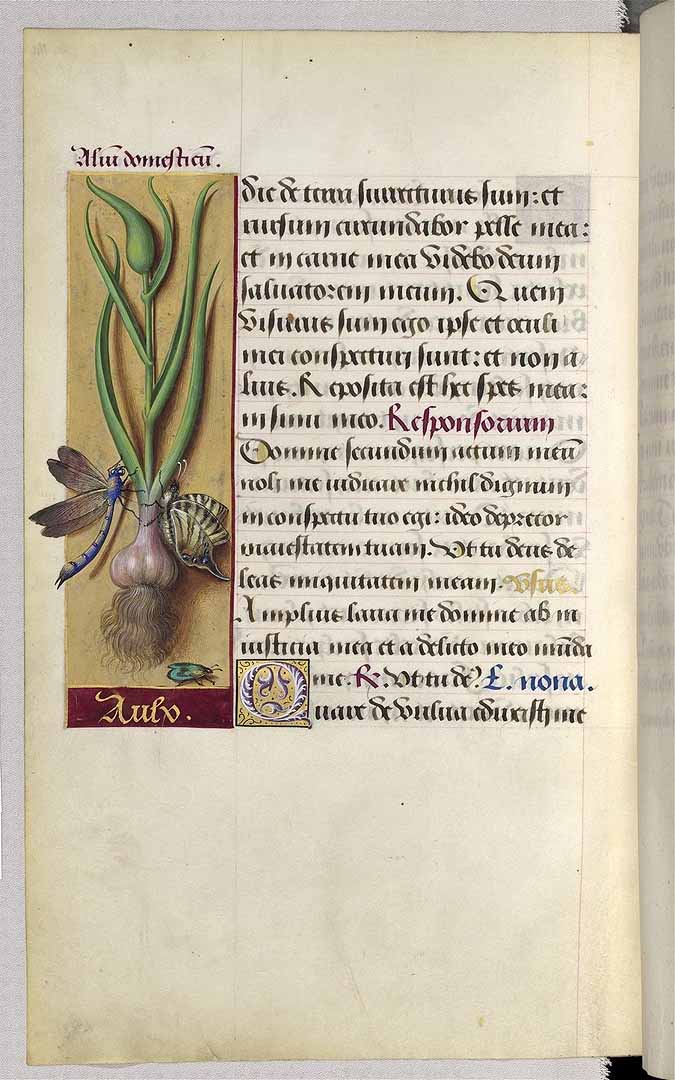 Aliū domesticū.
die de terra surrecturus sum: et
rursum circundabor pelle mea:
et in carne mea Videbo deum
saluatorem meum. Quem
Visurus sum ego ipse et oculi
mei conspecturi sunt: et non a
lius. Reposita est hec spes mea:
in sinu meo. Responsorium
Domine secundum actum meū
noli me iudicare nichil dignum
in conspectu tuo egi: ideo deprecor
maiestatem tuam. Vt tu deus de
leas iniquitatem meam. Vsus.
Amplius laua me domine ab in
iusticia mea et a delicto meo mūda
me. R. Vt tu de9. L. nona.
Quare de Vulua eduxisti me
Aulx.